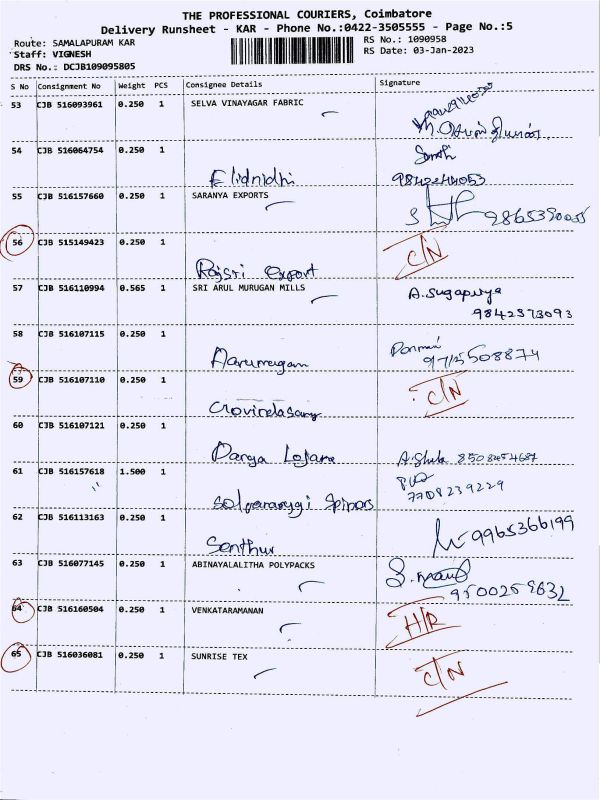 THE PROFESSIONAL COURIERS, Coimbatore
Delivery Runsheet - KAR - Phone No.:0422-3505555 - Page No.:5
Route: SAMALAPURAM KAR
RS No.: 1090958
Staff: VIGNESH
RS Date: 03-Jan-2023
DRS No.: DCJB109095805
S No Consignment No Weight PCS Consignee Details Signature
53 CJB 516093961 0.250 1 SELVA VINAYAGAR FABRIC
54 CJB 516064754 0.250 1
Elidnidhi 9842244053
55 CJB 516157660 0.250 1 SARANYA EXPORTS
9865390055
56 CJB 515149423 0.250 1 C/N
Rajsri export
57 CJB 516110994 0.565 1 SRI ARUL MURUGAN MILLS A.Sugapriya
9842373093
58 CJB 516107115 0.250 1
Aarumugam 9715508874
59 CJB 516107110 0.250 1 C/N
Govindasamy
60 CJB 516107121 0.250 1
8508454687
61 CJB 516157618 1.500 1
7708239229
Spinars
62 CJB 516113163 0.250 1 9965366199
Senthur
63 CJB 516077145 0.250 1 ABINAYALALITHA POLYPACKS
9500259632
64 CJB 516160504 0.250 1 VENKATARAMANAN H/R
65 CJB 516036081 0.250 1 SUNRISE TEX C/N